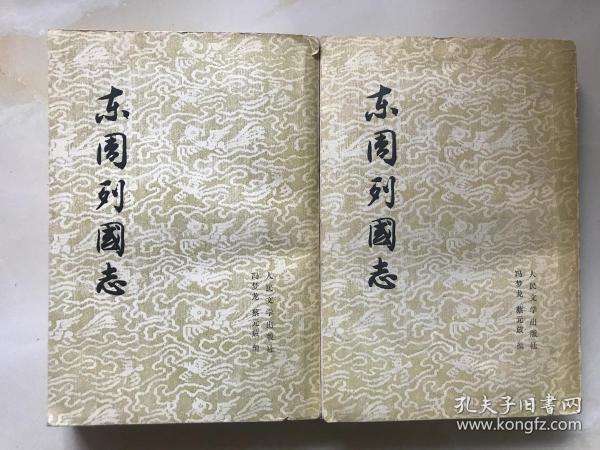 东周列國志
人民文学出版社
冯梦龙 蔡元放 编
东周列國志
人民文学出版社
冯梦龙 蔡元放 编
孔夫子旧書网
www.kongfz.com